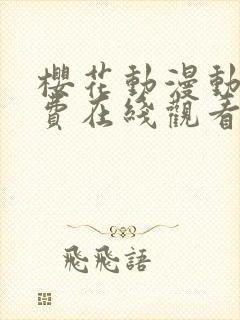 櫻花動漫動
費在綫觀看
飛飛語